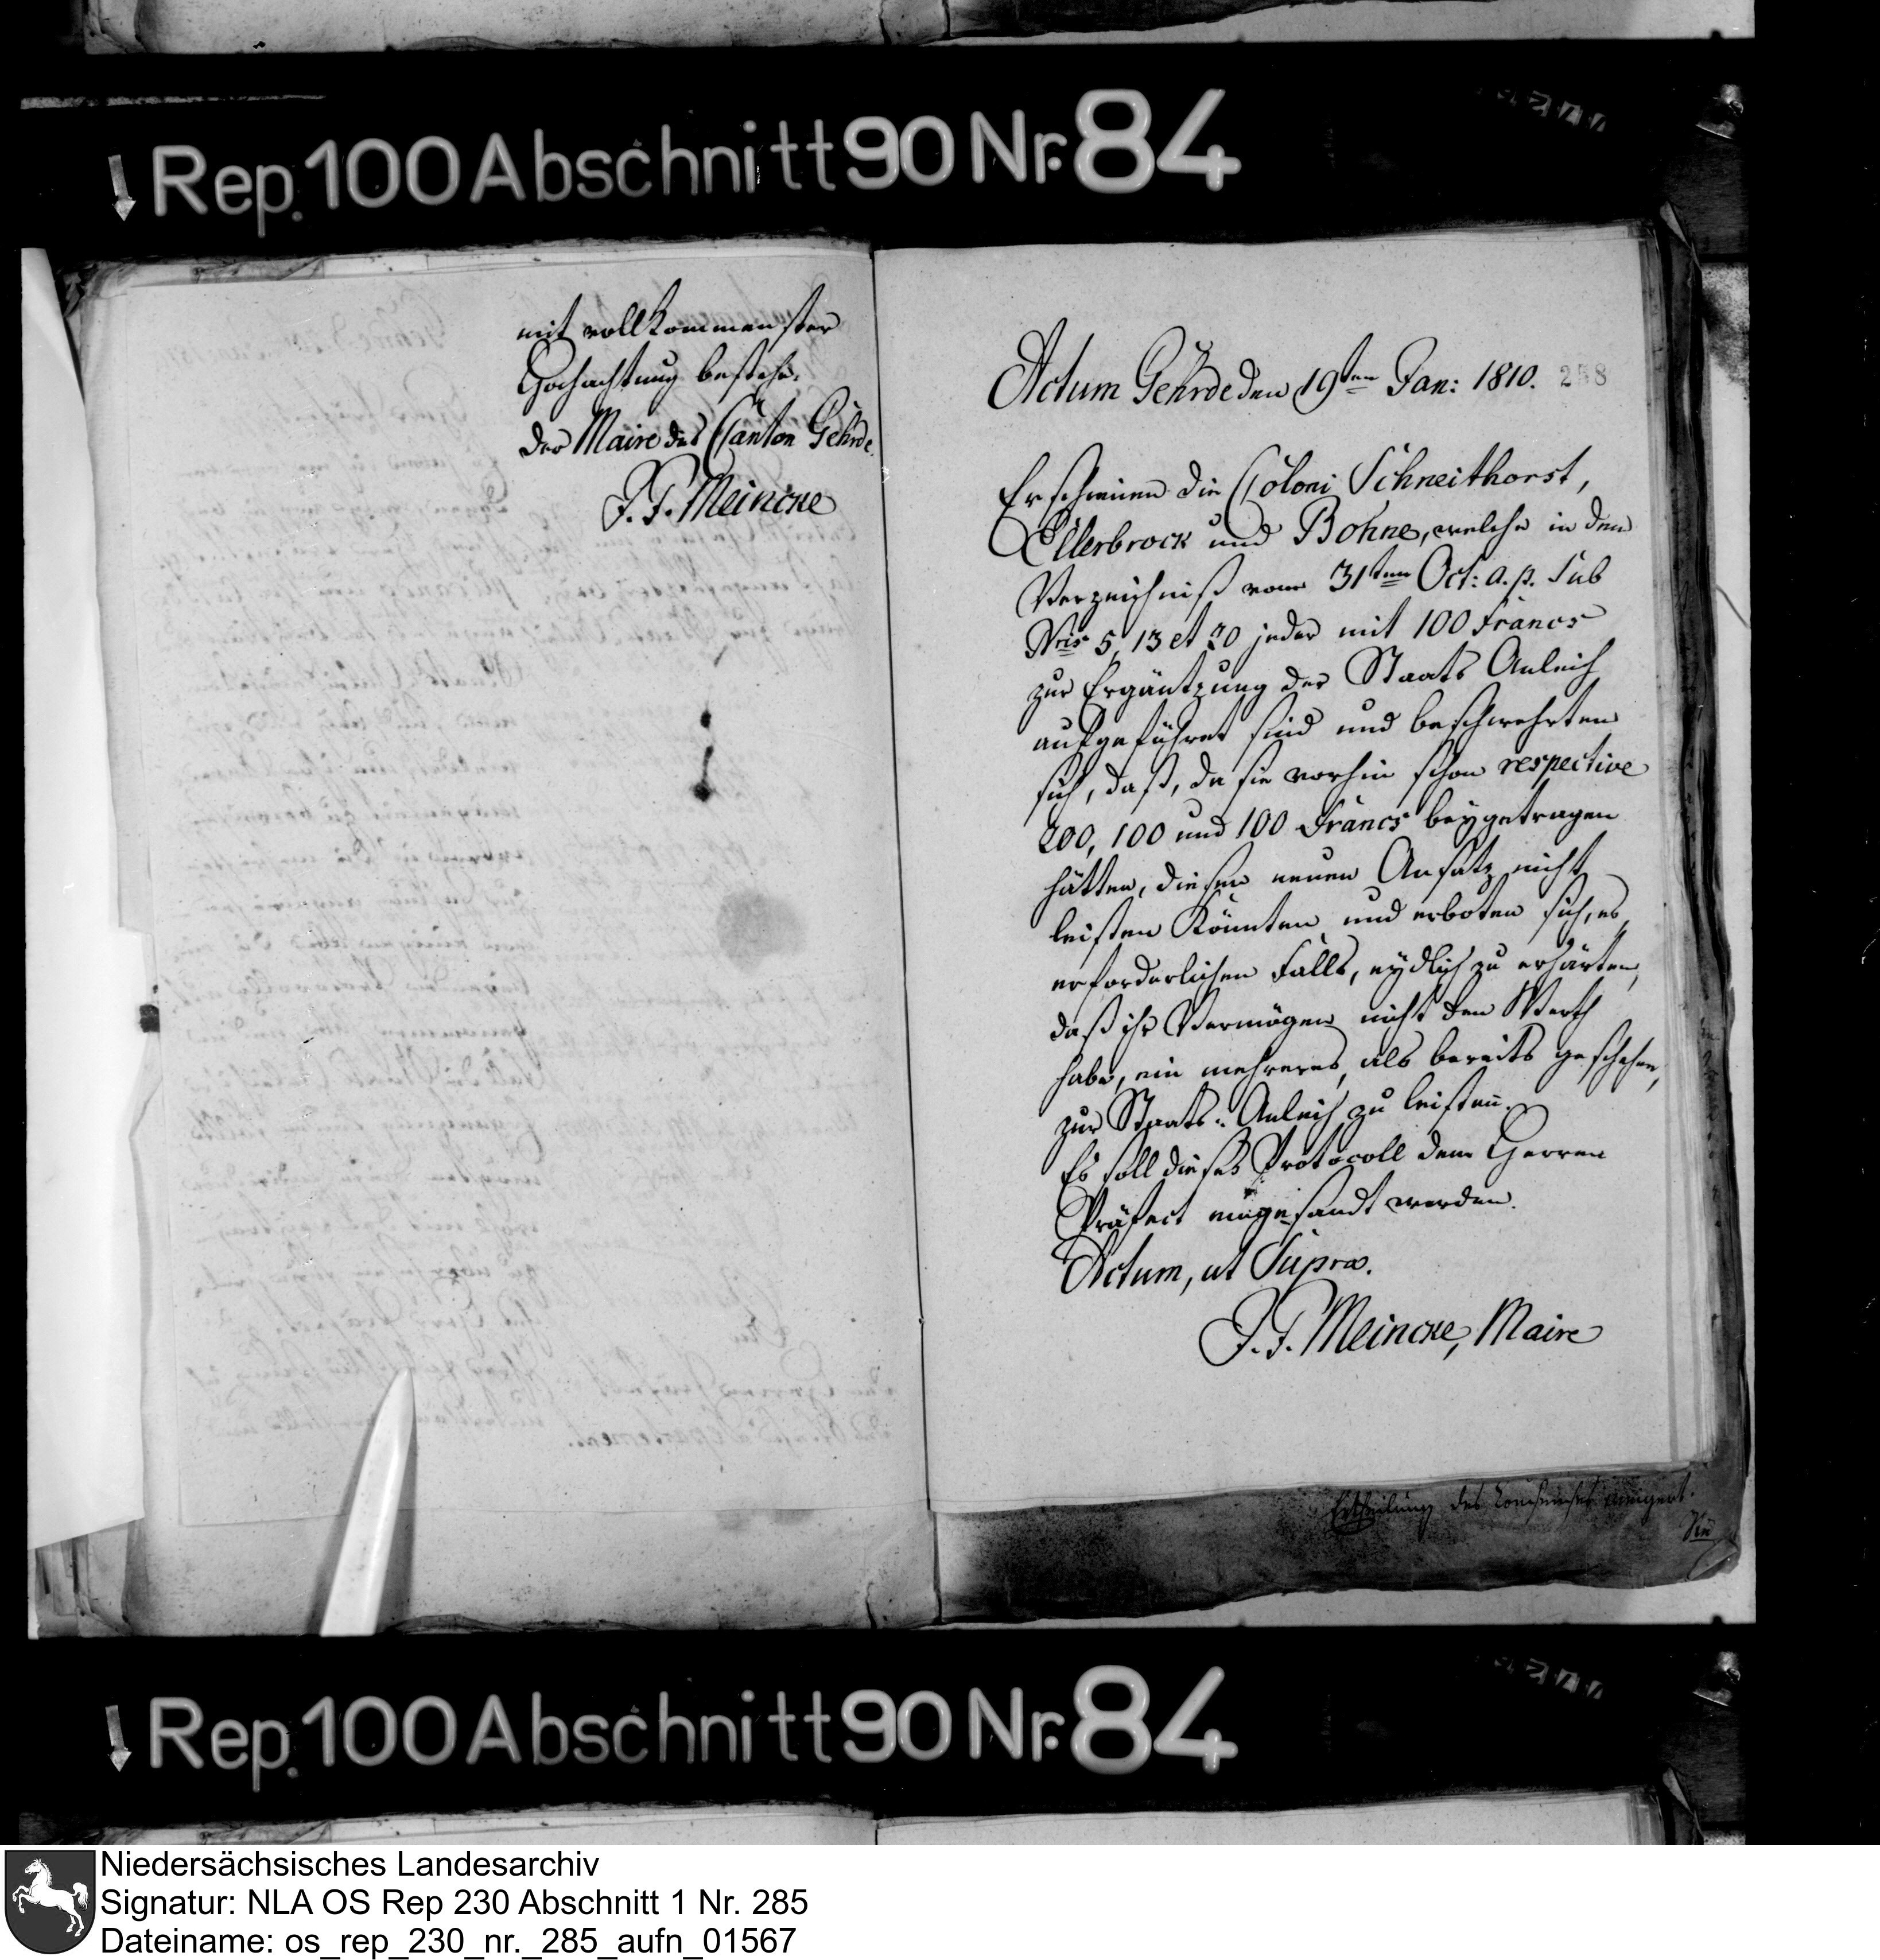 Rep. 100 Abschnitt 90 Nr. 84
mit vollkommenster
Hochachtung bestehe.
Der Maire des Canton Gehrde.
J. F. Meincke
258
Actum Gehrde den 19ten Jan: 1810.
Erschienen die Coloni Schneithorst,
Ellerbrock und Bohne, welche in dem
Verzeichniß vom 31ten Oct: a. p. sub
Nris 5, 13 et 20 jeder mit 100 Francs
zur Ergäntzung der Staats Anleih
aufgeführet sind und beschwehrten
sich, daß, da sie vorhin schon respective
200, 100 und 100 Francs beygetragen
hätten, diesen neuen Ansatz nicht
leisten könnten und erboten sich, es
erforderlichen Falls, eydlich zu erhärten,
daß ihr Vermögen nicht den Werth
habe, ein mehreres, als bereits geschehen,
zur Staats-Anleih zu leisten.
Es soll dieses Protocoll dem Herren
Präfect eingesandt werden.
Actum, ut Supra.
J. F. Meincke, Maire
Ertheilung des
Rep. 100 Abschnitt 90 Nr. 84
Niedersächsisches Landesarchiv
Signatur: NLA OS Rep 230 Abschnitt 1 Nr. 285
Dateiname: os_rep_230_nr._285_aufn_01567